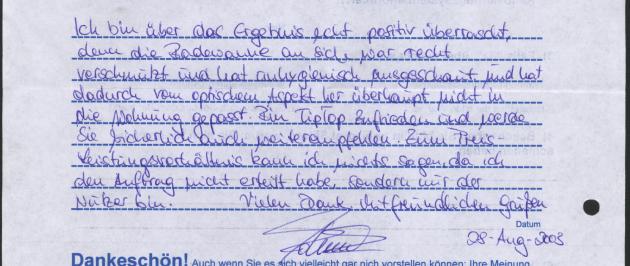 Ich bin über das Ergebnis echt positiv überrascht,
denn die Badewanne an sich, war recht
verschmutzt und hat unhygienisch ausgeschaut und hat
dadurch vom optischem Aspekt her überhaupt nicht in
die Wohnung gepasst. Bin TipTop Zufrieden und werde
Sie sicherlich auch weiterempfehlen. Zum Preis-
Leistungsverhältnis kann ich nichts sagen, da ich
den Auftrag nicht erteilt habe, sondern nur der
Nutzer bin. Vielen Dank. Mit freundlichen Grüßen
Datum
28-Aug-2003
Dankeschön! Auch wenn Sie es sich vielleicht gar nich vorstellen können: Ihre Meinung